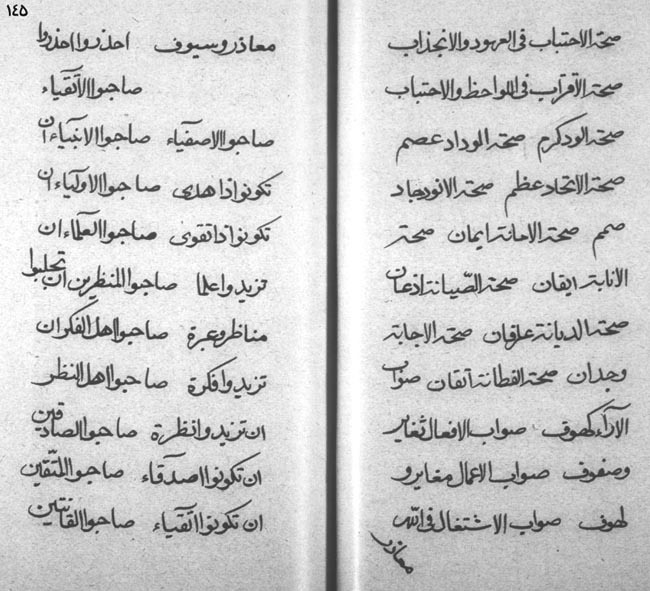 ١٤٥
صحة الاحتباب فى العهود والانجذاب
صحة الاقرآب فى اللواحظ والاحتباب
صحة الود كرم صحة الوداد عصم
صحة الاتحاد عظم صحة الانوجاد
صمم صحة الامانة ايمان صحة
الانابة ايقان صحة الصّيانة اذعان
صحة الديانة عرفان صحة الاجابة
وجدان صحة الفطانة اتقان صواب
الآرآء كهوف صواب الافعال ثغاير
وصفوف صواب الاعمال مغاير و
لهوف صواب الاشتغال فى الله
معاذر
معاذر وسيوف احذروا احذروا
صاحبوا الاتقياء
صاحبوا الاصفياء صاحبوا الانبياء ان
تكونوا ذا هدى صاحبوا الاوليآء ان
تكونوا ذا تقوى صاحبوا العلمآء ان
تزيدوا علما صاحبوا المنظرين ان تجلبوا
مناظر وعبرة صاحبوا اهل الفكر ان
تزيدوا فكرة صاحبوا اهل النظر
ان تزيدوا نظرة صاحبوا الصادقين
ان تكونوا اصدقاء صاحبوا المتّقين
ان تكونوا اتقياء صاحبوا القانتين